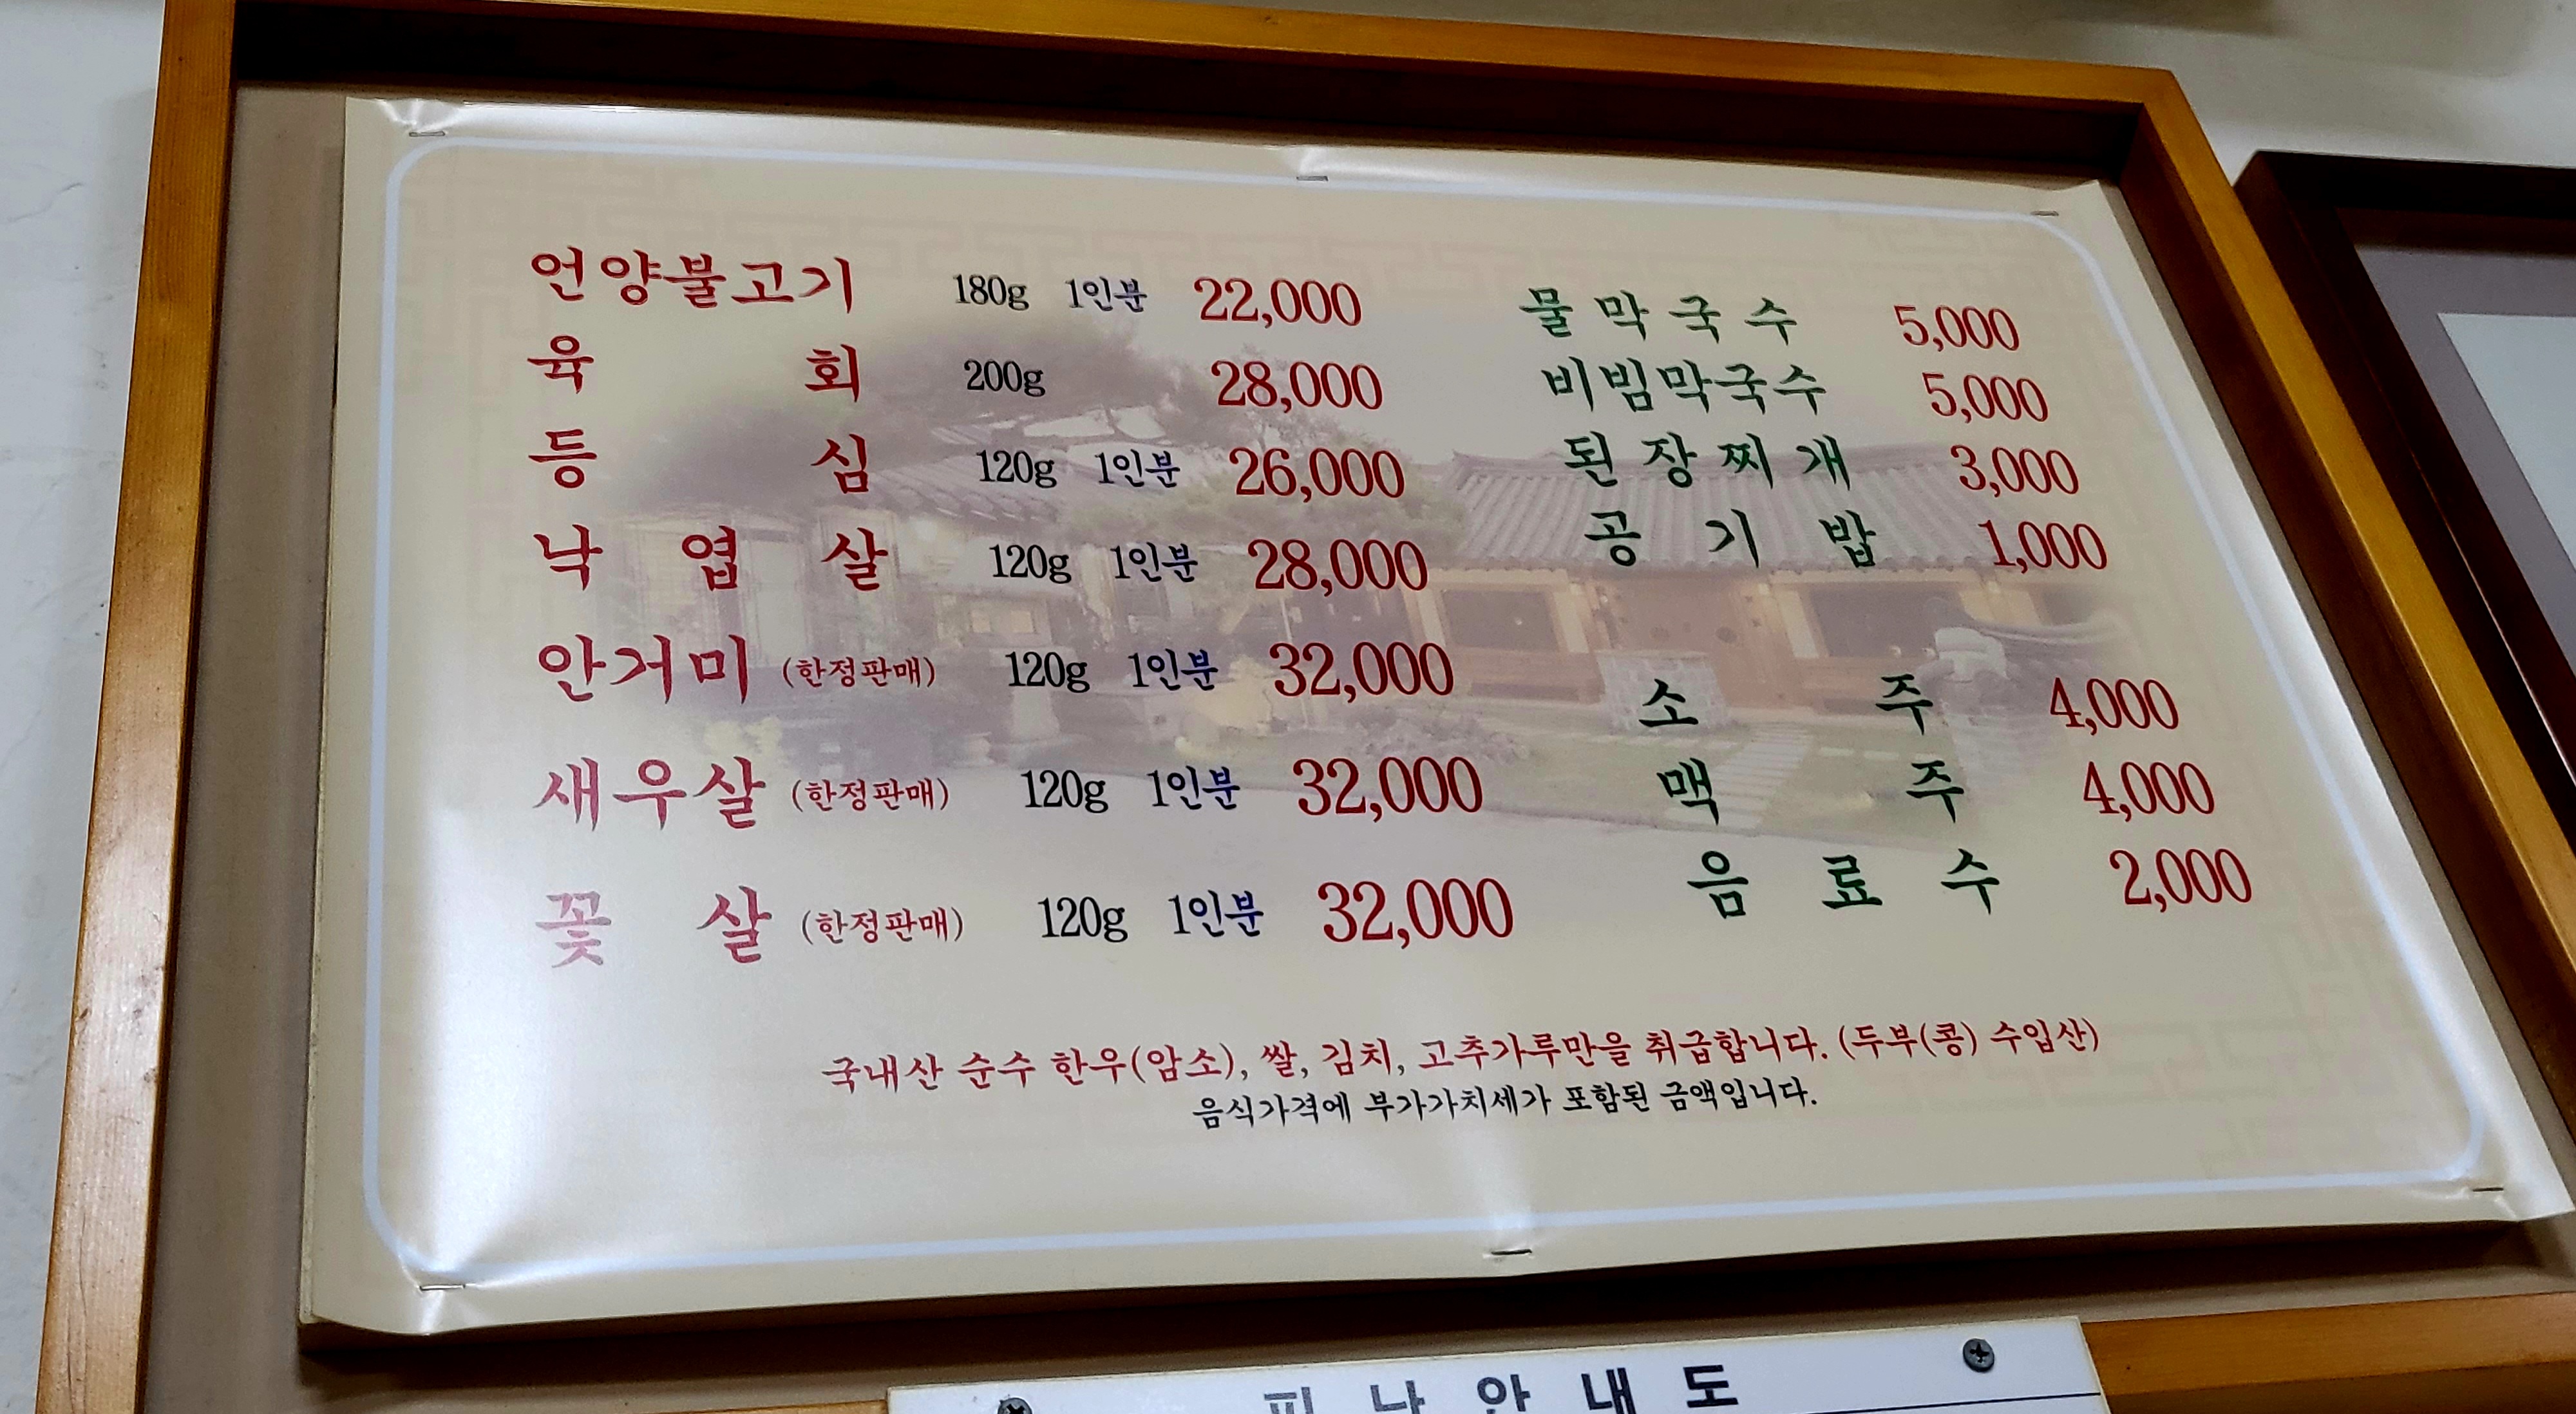 언양불고기 180g 1인분 22,000
육회 200g 28,000
등심 120g 1인분 26,000
낙엽살 120g 1인분 28,000
안거미 (한정판매) 120g 1인분 32,000
새우살 (한정판매) 120g 1인분 32,000
꽃살 (한정판매) 120g 1인분 32,000
물막국수 5,000
비빔막국수 5,000
된장찌개 3,000
공기밥 1,000
소주 4,000
맥주 4,000
음료수 2,000
국내산 순수 한우(암소), 쌀, 김치, 고추가루만을 취급합니다. (두부(콩) 수입산)
음식가격에 부가가치세가 포함된 금액입니다.
피난안내도